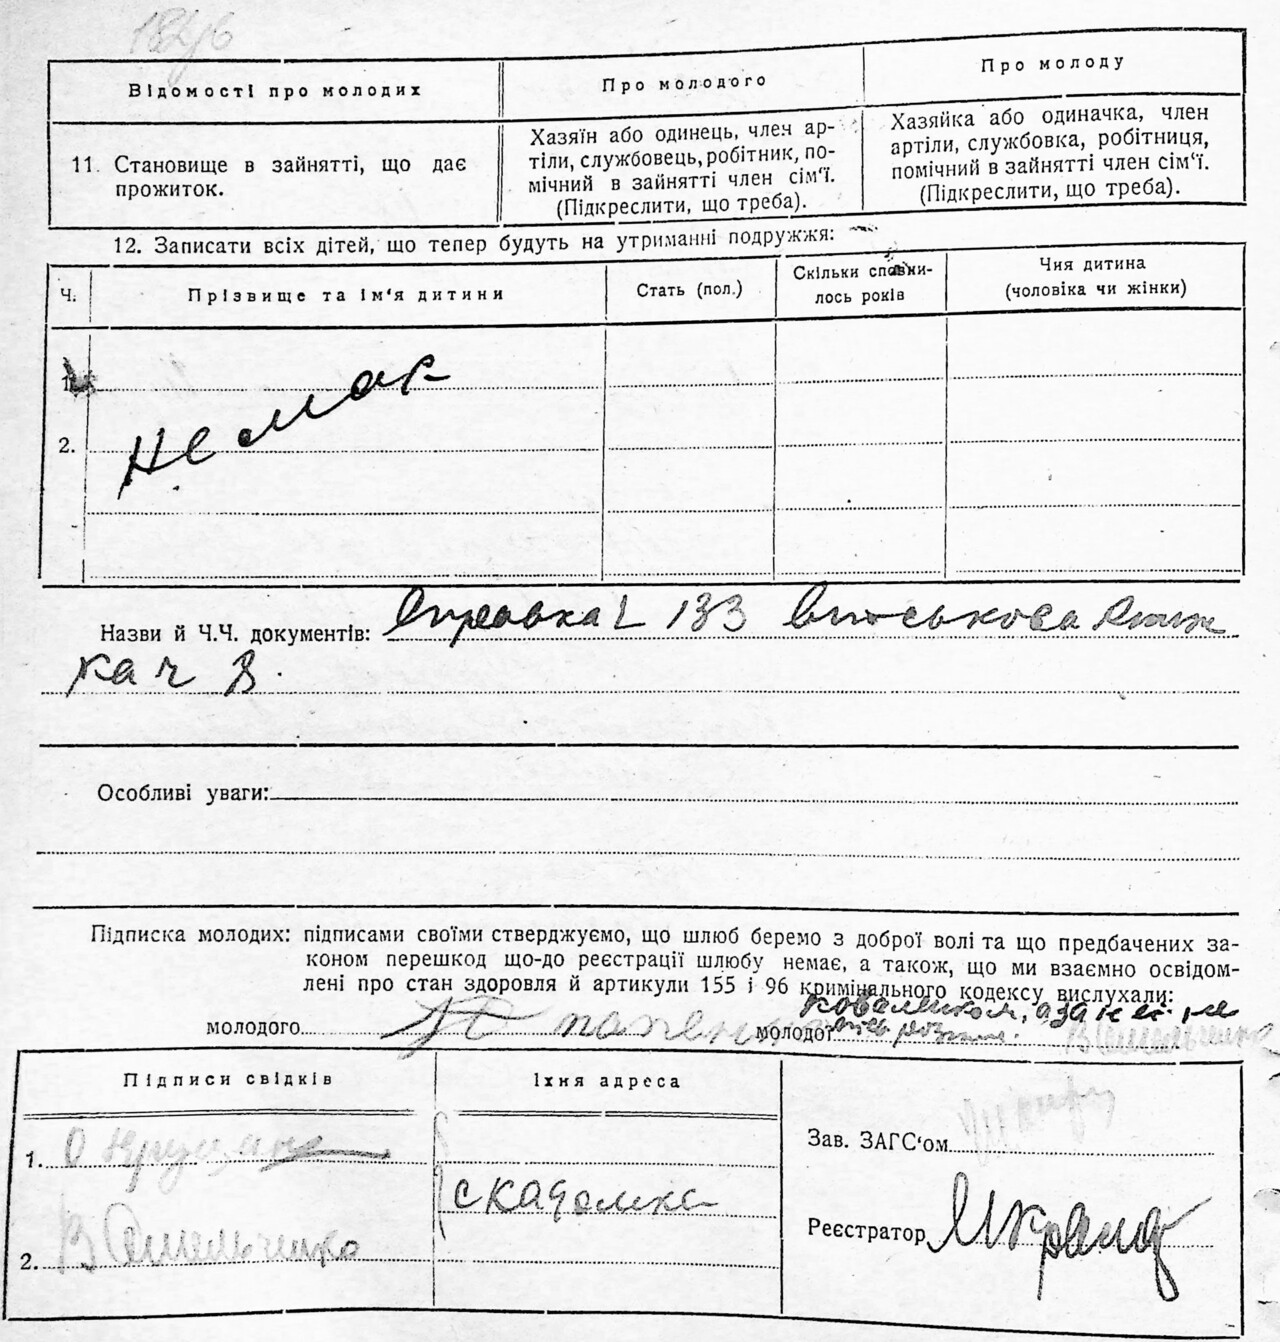 1846
Відомості про молодих
Про молодого
Про молоду
11. Становище в зайнятті, що дає
прожиток.
Хазяїн або одинець, член ар-
тіли, службовець, робітник, по-
мічний в зайнятті член сім'ї.
(Підкреслити, що треба).
Хазяйка або одиначка, член
артіли, службовка, робітниця,
помічний в зайнятті член сім'ї.
(Підкреслити, що треба).
12. Записати всіх дітей, що тепер будуть на утриманні подружжя:
Ч.
Прізвище та ім'я дитини
Стать (пол.)
Скільки сповни-
лось років
Чия дитина
(чоловіка чи жінки)
1.
не мае
2.
Назви й Ч.Ч. документів: Справка 133 військова
Особливі уваги:
Підписка молодих: підписами своїми стверджуємо, що шлюб беремо з доброї волі та що предбачених за-
коном перешкод що-до реєстрації шлюбу немає, а також, що ми взаємно освідом-
лені про стан здоровля й артикули 155 і 96 кримінального кодексу вислухали:
молодого
молодої В Омельченко
Підписи свідків
Їхня адреса
1. О
2. В Омельченко
Зав. ЗАГС'ом
Реєстратор